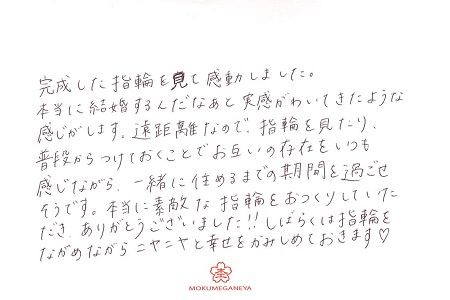 完成した指輪を見て感動しました。
本当に結婚するんだなあと実感がわいてきたような
感じがします。遠距離なので、指輪を見たり、
普段からつけておくことでお互いの存在をいつも
感じながら、一緒に住めるまでの期間を過ごせ
そうです。本当に素敵な指輪をおつくりしていた
だき、ありがとうございました!!しばらくは指輪を
ながめながらニヤニヤと幸せをかみしめておきます♡
MOKUMEGANEYA